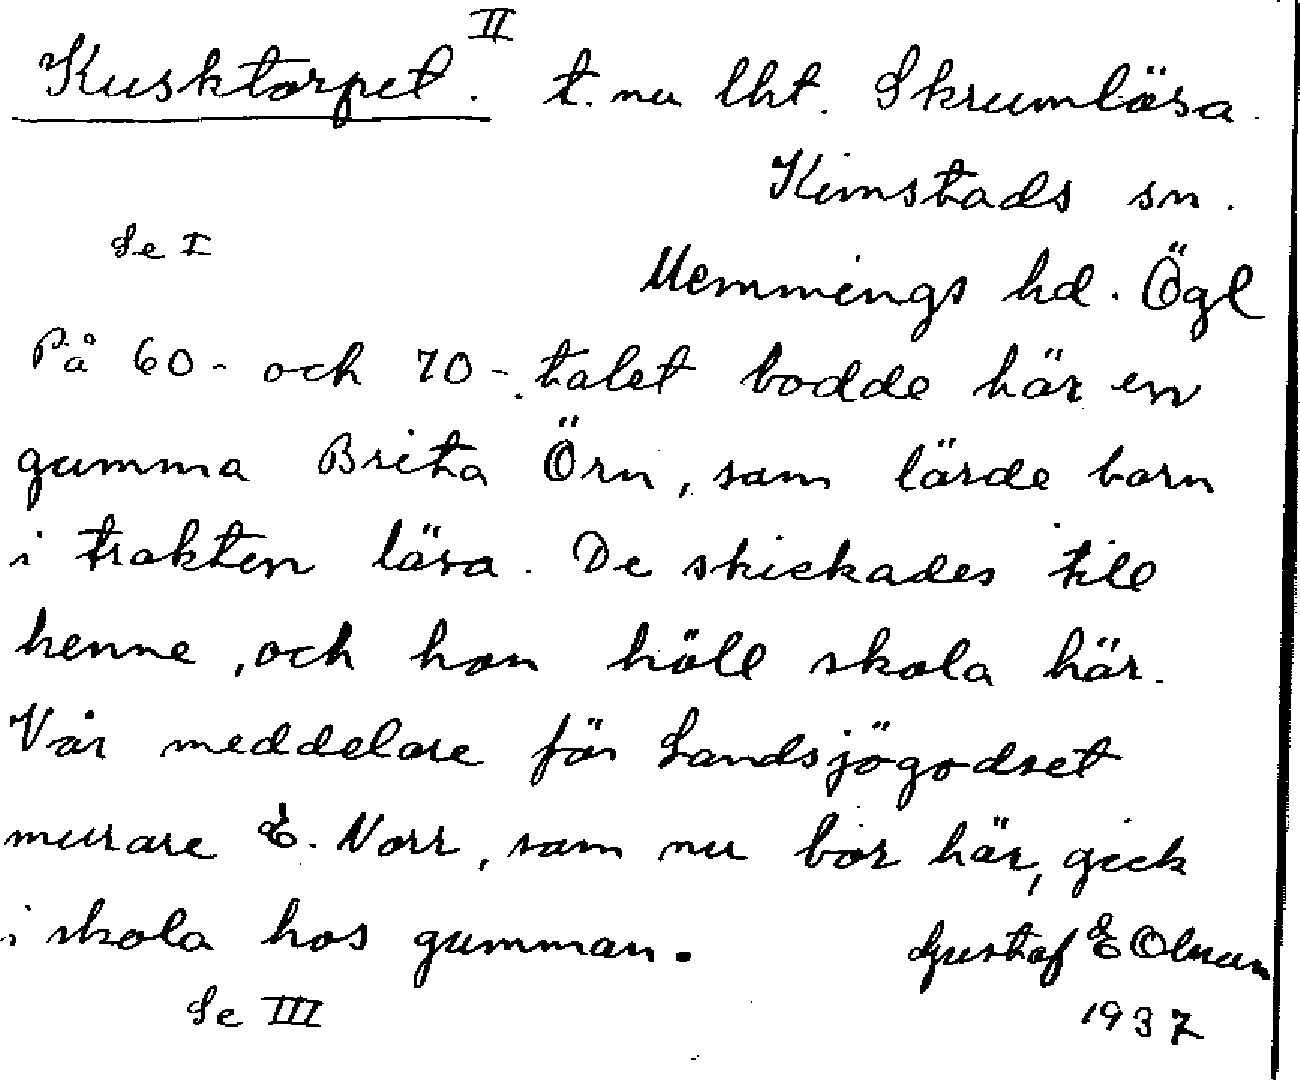 Kusktorpet. II t. nu lht. Skrumlösa.
Kimstads sn.
Se I
Memmings hd. Ögl
På 60- och 70-talet bodde här en
gumma Brita Örn, som lärde barn
i trakten läsa. De skickades till
henne, och hon höll skola här.
Vår meddelare för Landsjögodset
murare E. Norr, som nu bor här, gick
i skola hos gumman.
Gustaf E Olman
Se III
1937